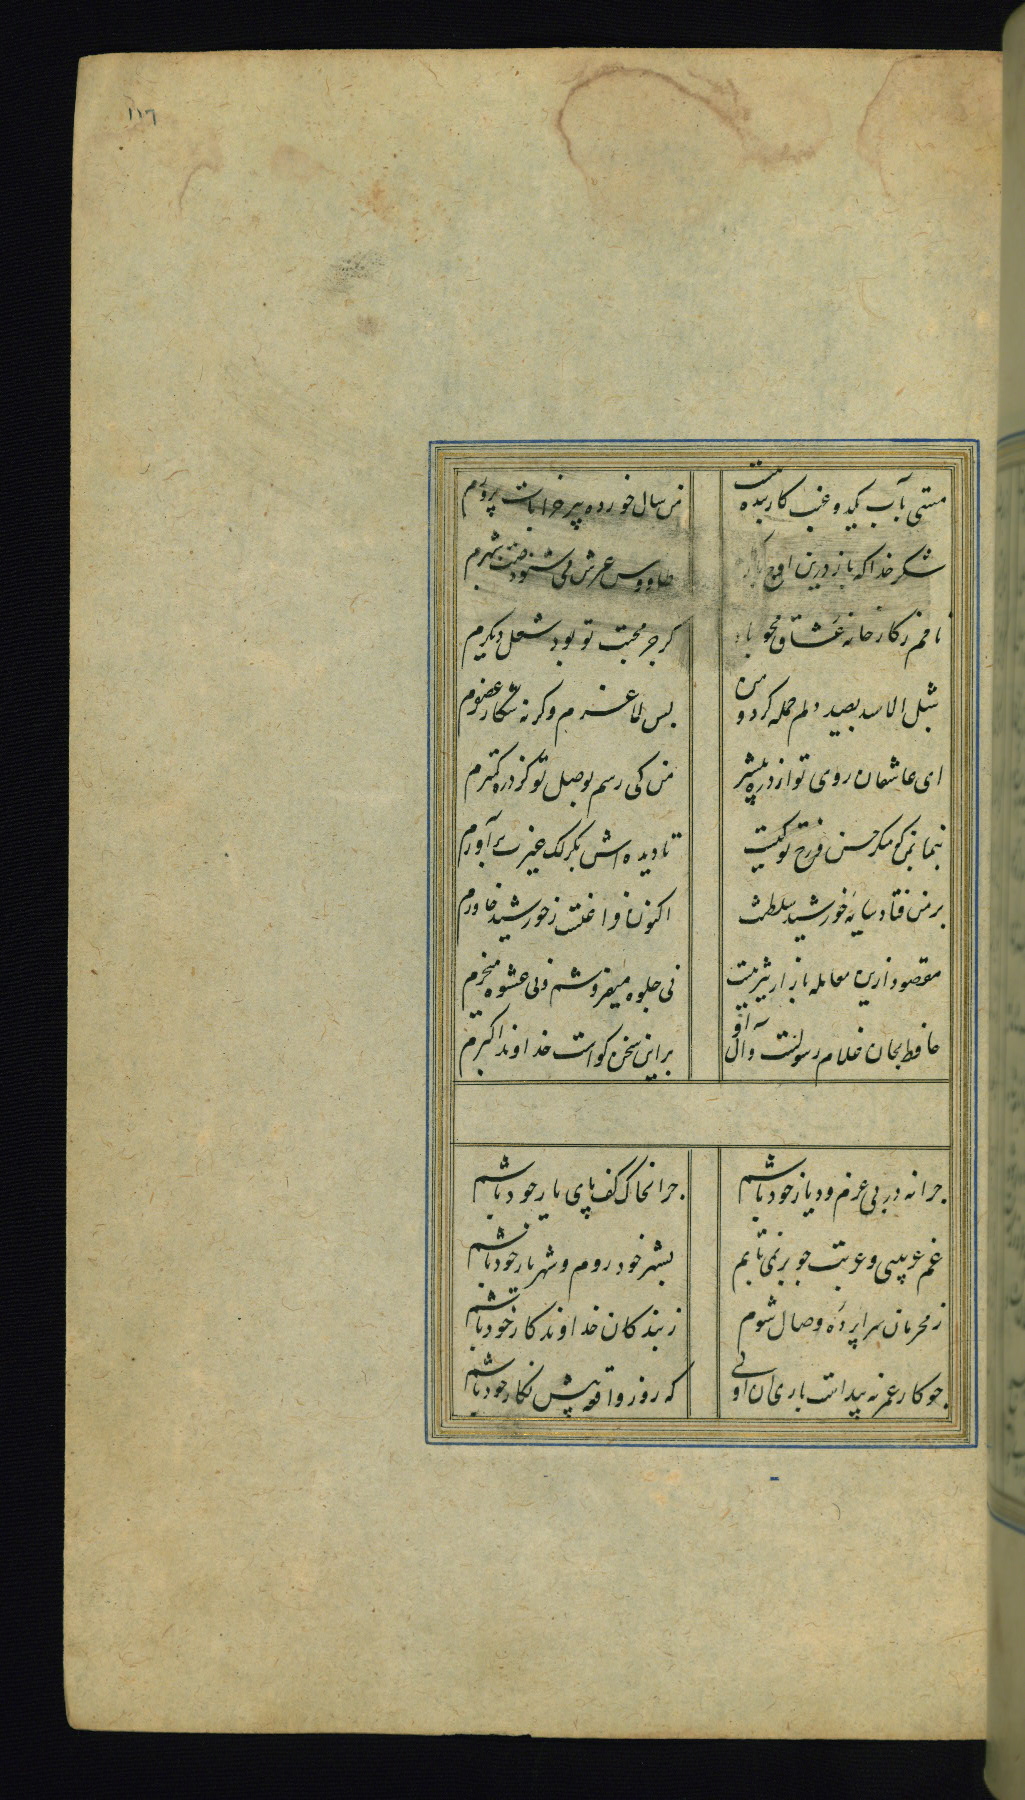 ١١٦
مستی بآب یکدو عنب کار بنده نیست    من سال خورده پیر خرابات پرورم
شکر خدا که باز درین اوج بارگاه    طاووس عرش می شنود صیت شهپرم
نامم ز کارخانه عشاق محو باد    کر جز محبت تو بود شغل دیکرم
شبل الاسد بصید دلم حمله کرد و من    بس لاغرم وکرنه شکار غضنفرم
ای عاشقان روی تو از ذره بیشتر    من کی رسم بوصل تو کز ذره کمترم
بنما بمن که منکر حسن رخ تو کیست    تا دیده اش بکزلک غیرت برآورم
بر من فتاد سایه خورشید سلطنت    اکنون فراغتست ز خورشید خاورم
مقصود ازین معامله بازار تیز نیست    نی جلوه میفروشم و نی عشوه میخرم
حافظ بجان غلام رسولست و آل او    بر این سخن کواست خداوند اکبرم
جرا نه در پی عزم و دیار خود باشم    جرا نه خاک کف پای یار خود باشم
غم غریبی و غربت جو بر نمی تابم    بشهر خود روم و شهریار خود باشم
ز محرمان سراپرده وصال شوم    ز بندکان خداوندکار خود باشم
جو کار عمر نه پیداست باری آن اولی    که روز واقعه پیش نکار خود باشم